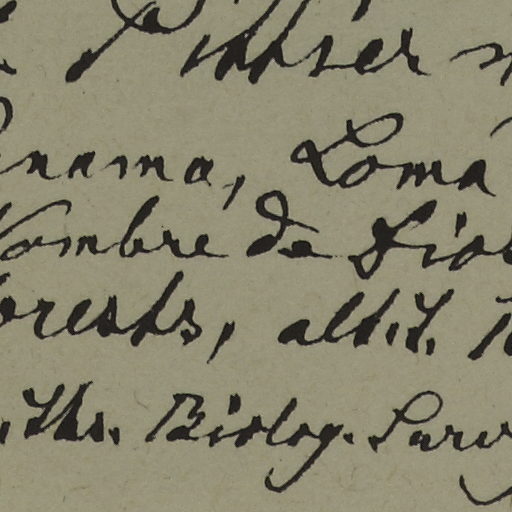 Pittier
nama, Loma
Nombre de Dios
orests, altit.
Ths. Biolog. Surv